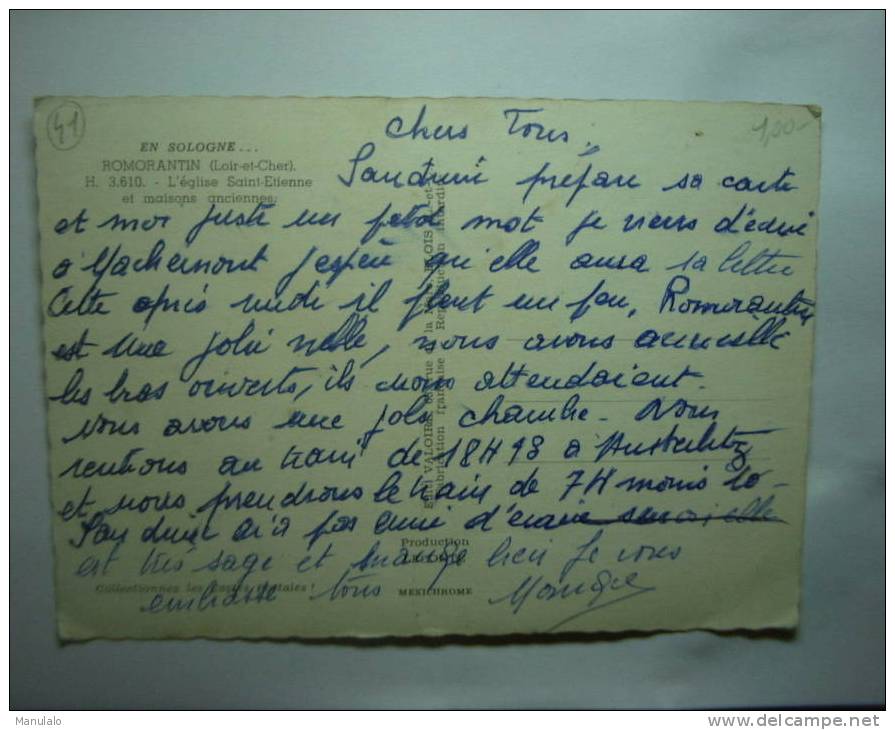 41
1,00-
EN SOLOGNE...
ROMORANTIN (Loir-et-Cher).
H. 3.610. - L'église Saint-Etienne
et maisons anciennes.
Chers Tous,
prépare sa carte
et moi juste un petit mot je viens d'écrire
à Machemont j'espère qu'elle aura sa lettre
Cette après midi il pleut un peu, Romorantin
est une jolie ville, nous avons
les bras ouverts, ils nous attendaient.
nous avons une jolie chambre. Nous
rentrons au train de 18H 98 à Austerlitz
et nous prendrons le train de 7H moins 10-
n'a pas envie d'écrire
est très sage et mange bien je vous
embrasse tous Monique
Edit. VALOIRE
Fabrication française - Reproduction interdite
Production
MEXICHROME
Collectionnez les Cartes Postales !
Manulalo
http://www.delcampe.net